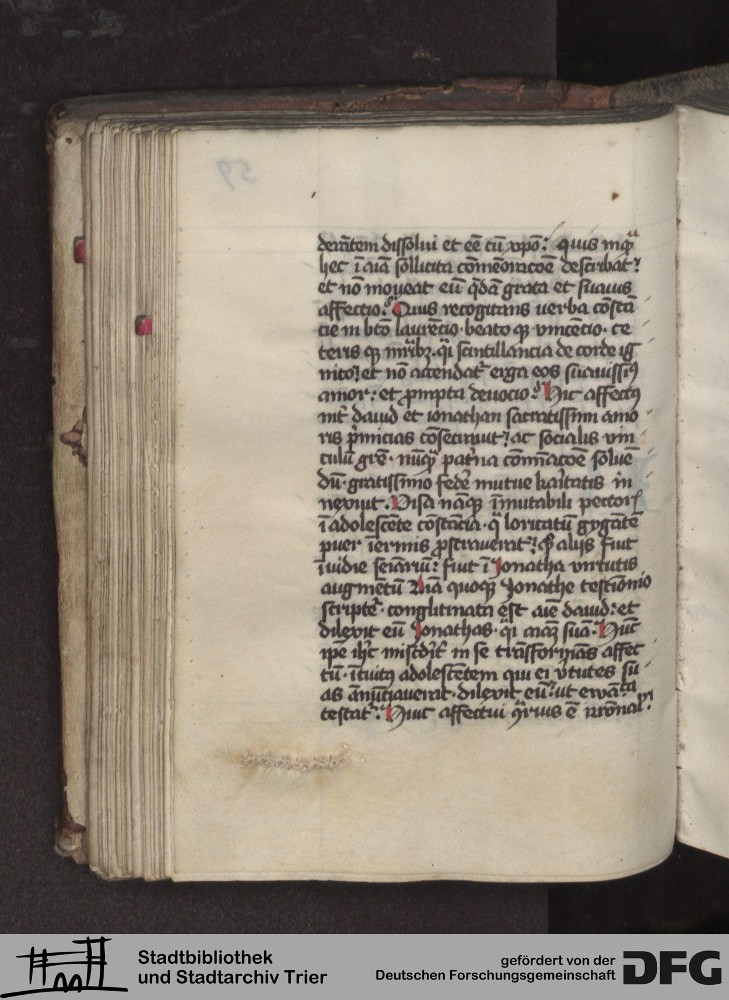 59
derātem dissolui et eē cū xpō: quis inqᵃ
hec ī aīa sollicita cōmēoracōe describat?
et nō moueat eū qͥdā grata et suauis
affectio. Quis recogitans uerba cōstā
cie in btō laurēcio. beato qꝫ vincēcio. ce
teris qꝫ mr̄ibꝫ. q̄i scintillancia de corde ig
nito? et nō accendat᷑ erga eos suauissiꝰ
amor: et prompta deuocio? Hic affectꝰ
int᷑ dauid et ionathan sacratissimi amo
ris p̄micias cōsecrauit? ac socialis vin
culū grē. nūqꝫ pat᷑na cōmīacōe soluē
dū. gratissimo feder̄ mutue kaͬitatis in
nexuit. Visa nāqꝫ īmutabili pector᷑
ī adolescēte cōstācia. q̄ loricatū gygātē
puer īermis ꝓstrauerat? qꝫ alijs fiut
īuidie semīariū: fiut ī Ionatha virtutis
augmētū Nā quoqꝫ Ionathe testiōnio
scripte᷑. conglutinata est aīe dauid: et
dilexit eū Ionathas. q̄i aīaꝫ suā. Hūc
ipē ihc mīscdit᷑ in se trāsformās affec
tū. ītuitꝰ adolescētem qui ei v̄tutes su
as ānūciauerat. dilexit eū? ut ewāᵃ
testat᷑. Huic affectui q̄rius ē irrōnal᷑.
Stadtbibliothek
und Stadtarchiv Trier
gefördert von der
Deutschen Forschungsgemeinschaft
DFG